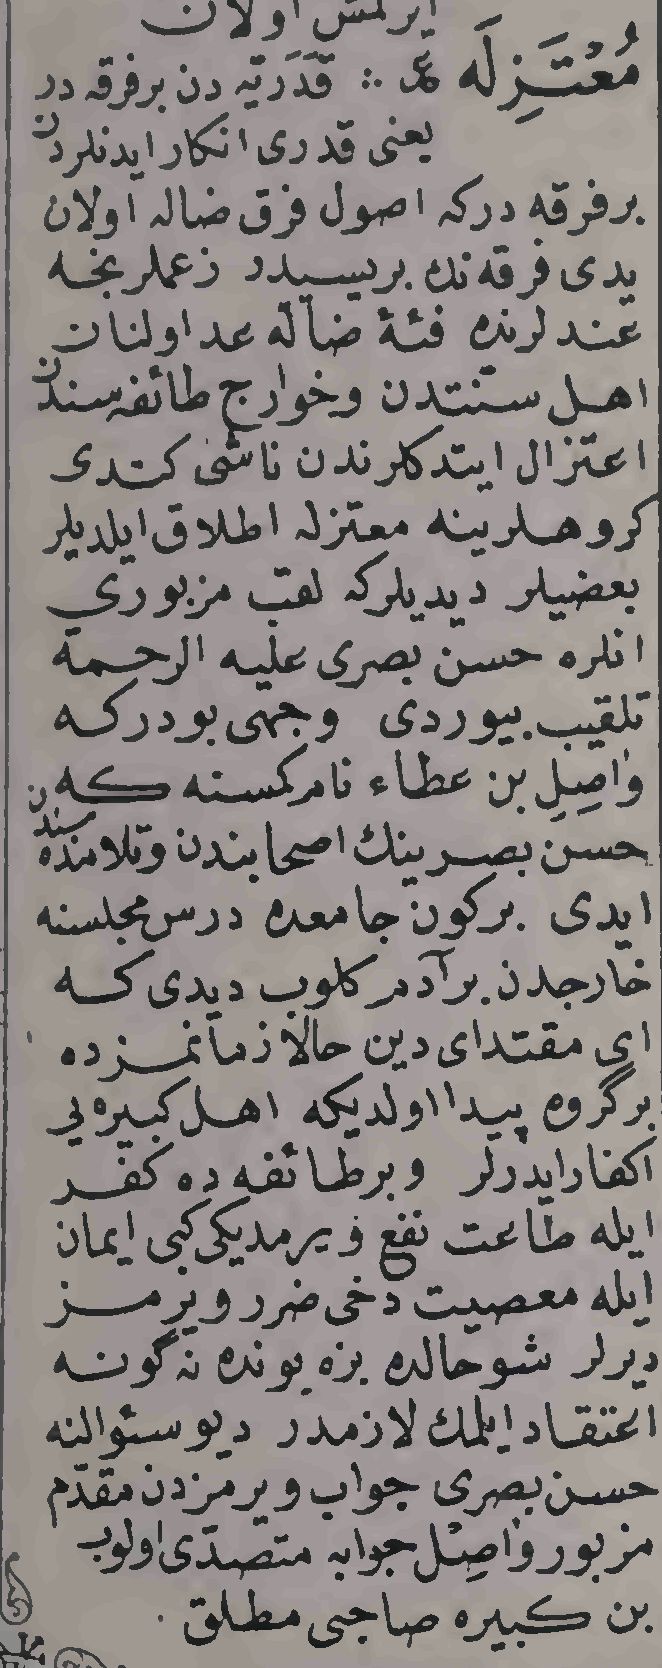 ايرلمش اولان
مُعْتَزِلَه عـ ∴ قَدَرِيّه دن بر فرقه در
يعنى قدرى انكار ايدنلردن
بر فرقه در كه اصول فرق ضاله اولان
يدى فرقه نك بريسيدر زعملرنجه
عندلرنده فئۀ ضآلّه عد اولنان
اهل سنّتدن وخوارج طائفه سندن
اعتزال ايتدكلرندن ناشى كندى
كروهلرينه معتزله اطلاق ايلديلر
بعضيلر ديديلركه لقب مزبورى
انلره حسن بصرى عليه الرحمة
تلقيب بيوردى وجهى بودركه
واصِلِ بن عطاء نام كمسنه كه
حسن بصرينك اصحابندن وتلامذه سندن
ايدى بركون جامعده درس مجلسنه
خارجدن بر آدم كلوب ديدى كه
اى مقتداى دين حالا زمانمزده
بر گروه پيدا اولديكه اهل كبيره يى
اكفار ايدرلر وبر طائفه ده كفر
ايله طاعت نفع ويرمديكى كبى ايمان
ايله معصيت دخى ضرر ويرمز
ديرلر شو حالده بزه بونده نه گونه
اعتقاد ايلمك لازمدر ديو سئوالنه
حسن بصرى جواب ويرمزدن مقدّم
مزبور واصِل جوابه متصدّى اولوب
بن كبيره صاحبى مطلق